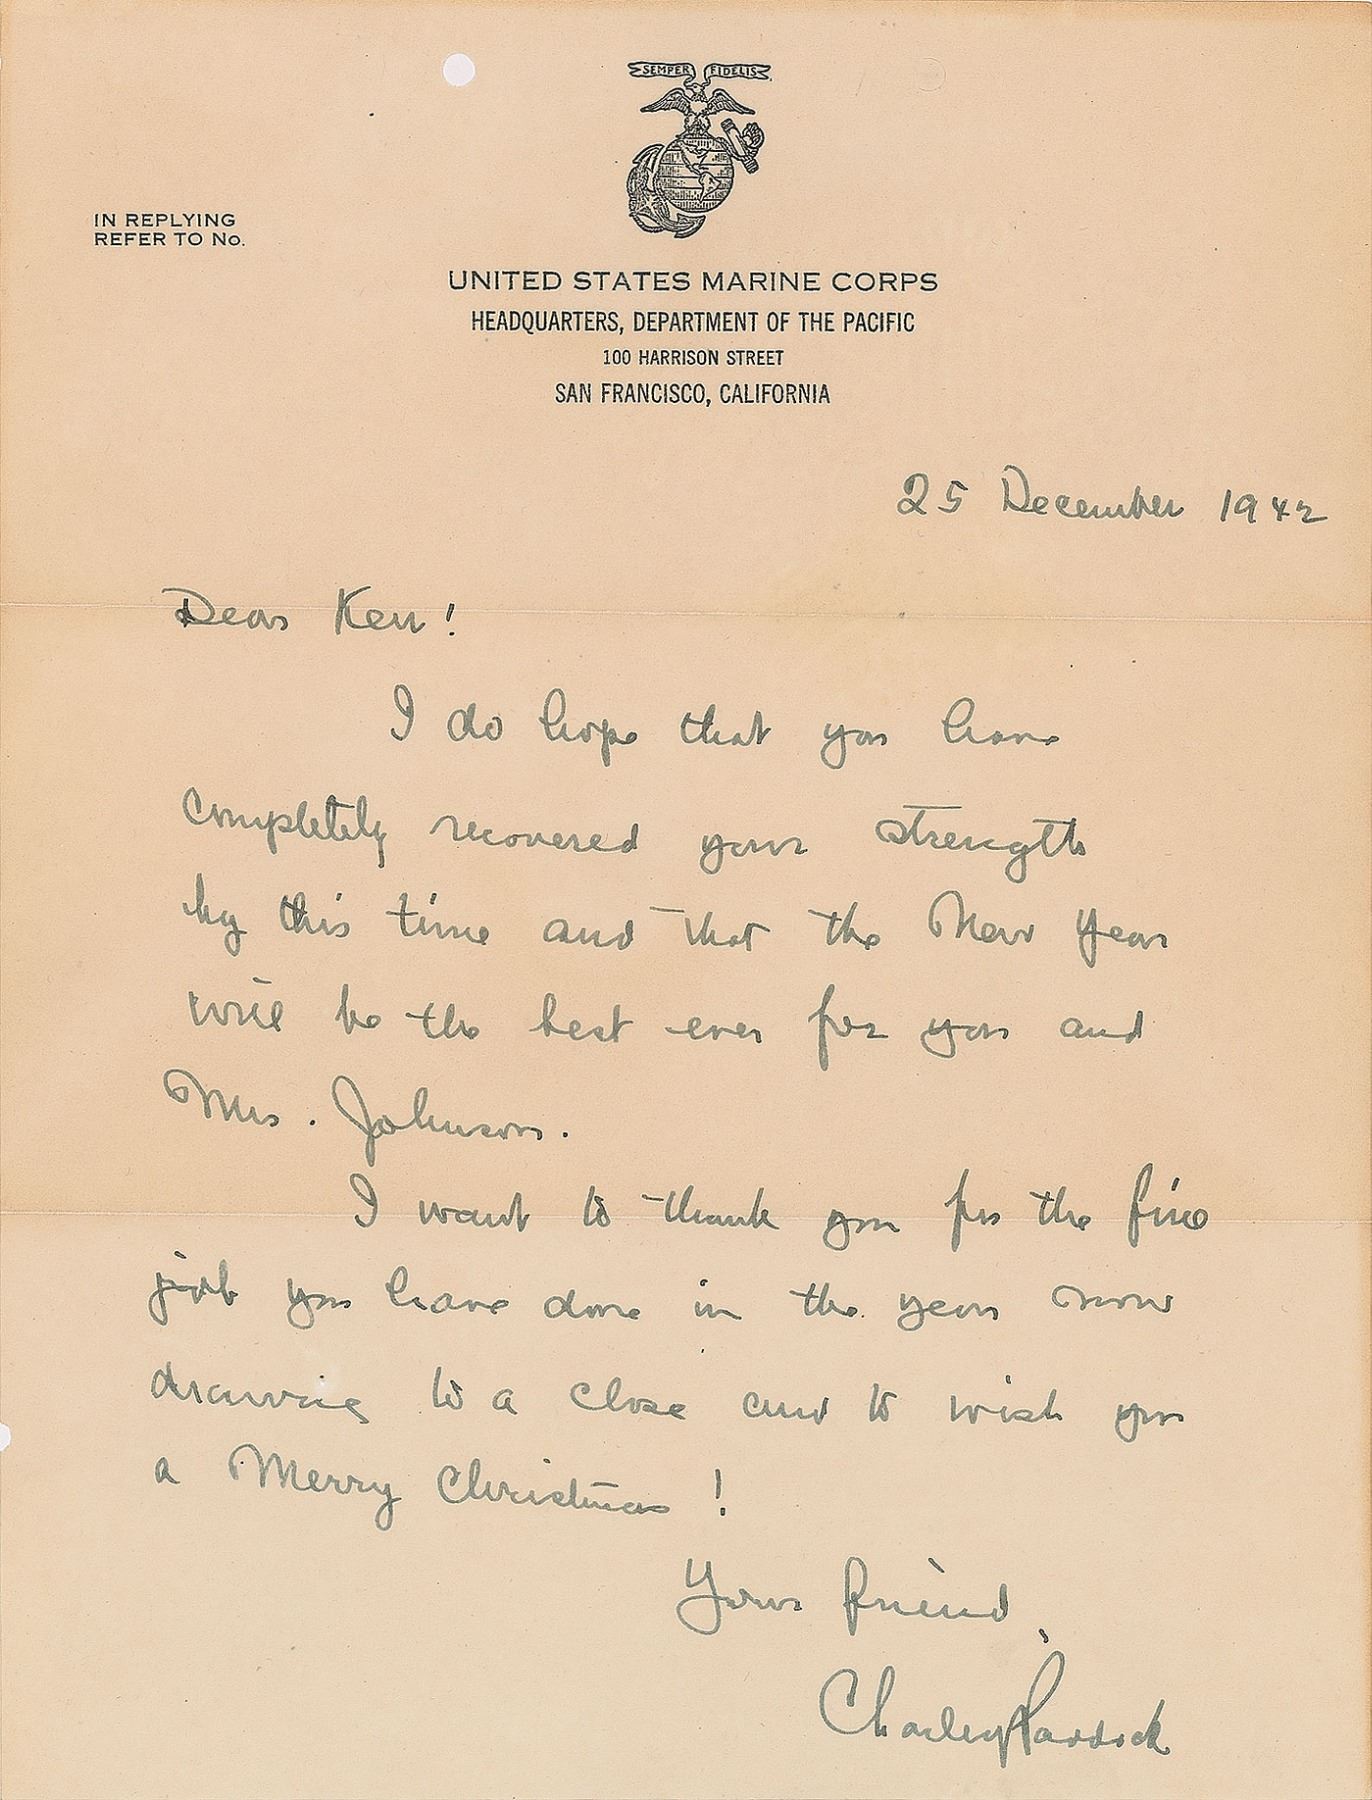 SEMPER FIDELIS
IN REPLYING
REFER TO No.
UNITED STATES MARINE CORPS
HEADQUARTERS, DEPARTMENT OF THE PACIFIC
100 HARRISON STREET
SAN FRANCISCO, CALIFORNIA
25 December 1942
Dear Ken!
I do hope that you have
completely recovered your strength
by this time and that the New Year
will be the best ever for you and
Mrs. Johnson.
I want to thank you for the fine
job you have done in the year now
drawing to a close and to wish you
a Merry Christmas!
Your friend,
Charley Paddock